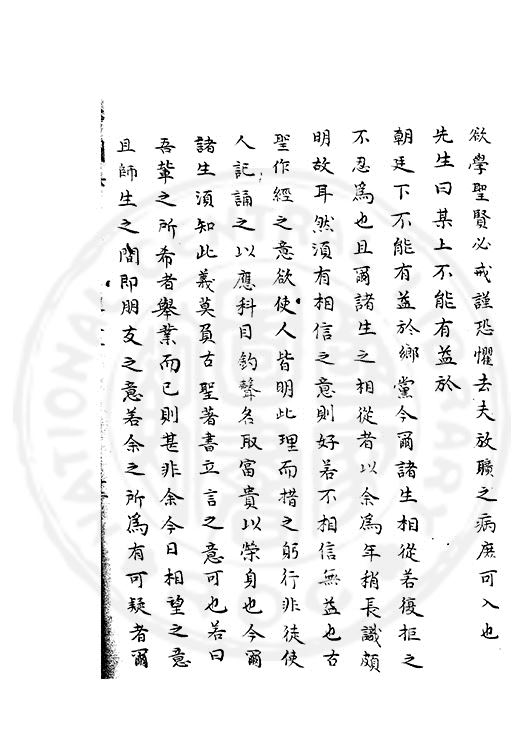 欲學聖賢必戒謹恐懼去夫放曠之病庶可入也
先生曰某上不能有益於
朝廷下不能有益於鄉黨今爾諸生相從若復拒之
不忍為也且爾諸生之相從者以余為年稍長識頗
明故耳然須有相信之意則好若不相信無益也古
聖作經之意欲使人皆明此理而措之躬行非徒使
人記誦之以應科目釣聲名取富貴以榮身也今爾
諸生須知此義莫負古聖著書立言之意可也若曰
吾輩之所希者舉業而已則甚非余今日相望之意
且師生之間即朋友之意若余之所為有可疑者爾